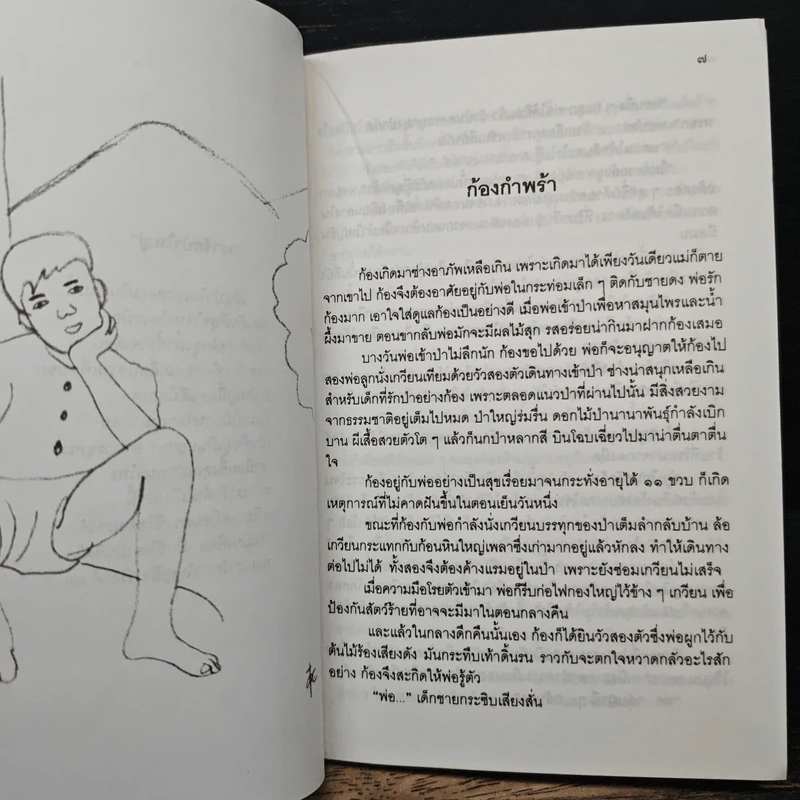 ๗
ก้องกำพร้า
ก้องเกิดมาช่างอาภัพเหลือเกิน เพราะเกิดมาได้เพียงวันเดียวแม่ก็ตาย
จากเขาไป ก้องจึงต้องอาศัยอยู่กับพ่อในกระท่อมเล็ก ๆ ติดกับชายดง พ่อรัก
ก้องมาก เอาใจใส่ดูแลก้องเป็นอย่างดี เมื่อพ่อเข้าป่าเพื่อหาสมุนไพรและน้ำ
ผึ้งมาขาย ตอนขากลับพ่อมักจะมีผลไม้สุก รสอร่อยน่ากินมาฝากก้องเสมอ
บางวันพ่อเข้าป่าไม่ลึกนัก ก้องขอไปด้วย พ่อก็จะอนุญาตให้ก้องไป
สองพ่อลูกนั่งเกวียนเทียมด้วยวัวสองตัวเดินทางเข้าป่า ช่างน่าสนุกเหลือเกิน
สำหรับเด็กที่รักป่าอย่างก้อง เพราะตลอดแนวป่าที่ผ่านไปนั้น มีสิ่งสวยงาม
จากธรรมชาติอยู่เต็มไปหมด ป่าใหญ่ร่มรื่น ดอกไม้ป่านานาพันธุ์กำลังเบิก
บาน ผีเสื้อสวยตัวโต ๆ แล้วก็นกป่าหลากสี บินโฉบเฉี่ยวไปมาน่าตื่นตาตื่น
ใจ
ก้องอยู่กับพ่ออย่างเป็นสุขเรื่อยมาจนกระทั่งอายุได้ ๑๑ ขวบ ก็เกิด
เหตุการณ์ที่ไม่คาดฝันขึ้นในตอนเย็นวันหนึ่ง
ขณะที่ก้องกับพ่อกำลังนั่งเกวียนบรรทุกของป่าเต็มลำกลับบ้าน ล้อ
เกวียนกระแทกกับก้อนหินใหญ่เพลาซึ่งเก่ามากอยู่แล้วหักลง ทำให้เดินทาง
ต่อไปไม่ได้ ทั้งสองจึงต้องค้างแรมอยู่ในป่า เพราะยังซ่อมเกวียนไม่เสร็จ
เมื่อความมืดโรยตัวเข้ามา พ่อก็รีบก่อไฟกองใหญ่ไว้ข้าง ๆ เกวียน เพื่อ
ป้องกันสัตว์ร้ายที่อาจจะมีมาในตอนกลางคืน
และแล้วในกลางดึกคืนนั้นเอง ก้องก็ได้ยินวัวสองตัวซึ่งพ่อผูกไว้กับ
ต้นไม้ร้องเสียงดัง มันกระทืบเท้าดิ้นรน ราวกับจะตกใจหวาดกลัวอะไรสัก
อย่าง ก้องจึงสะกิดให้พ่อรู้ตัว
“พ่อ...” เด็กชายกระซิบเสียงสั่น